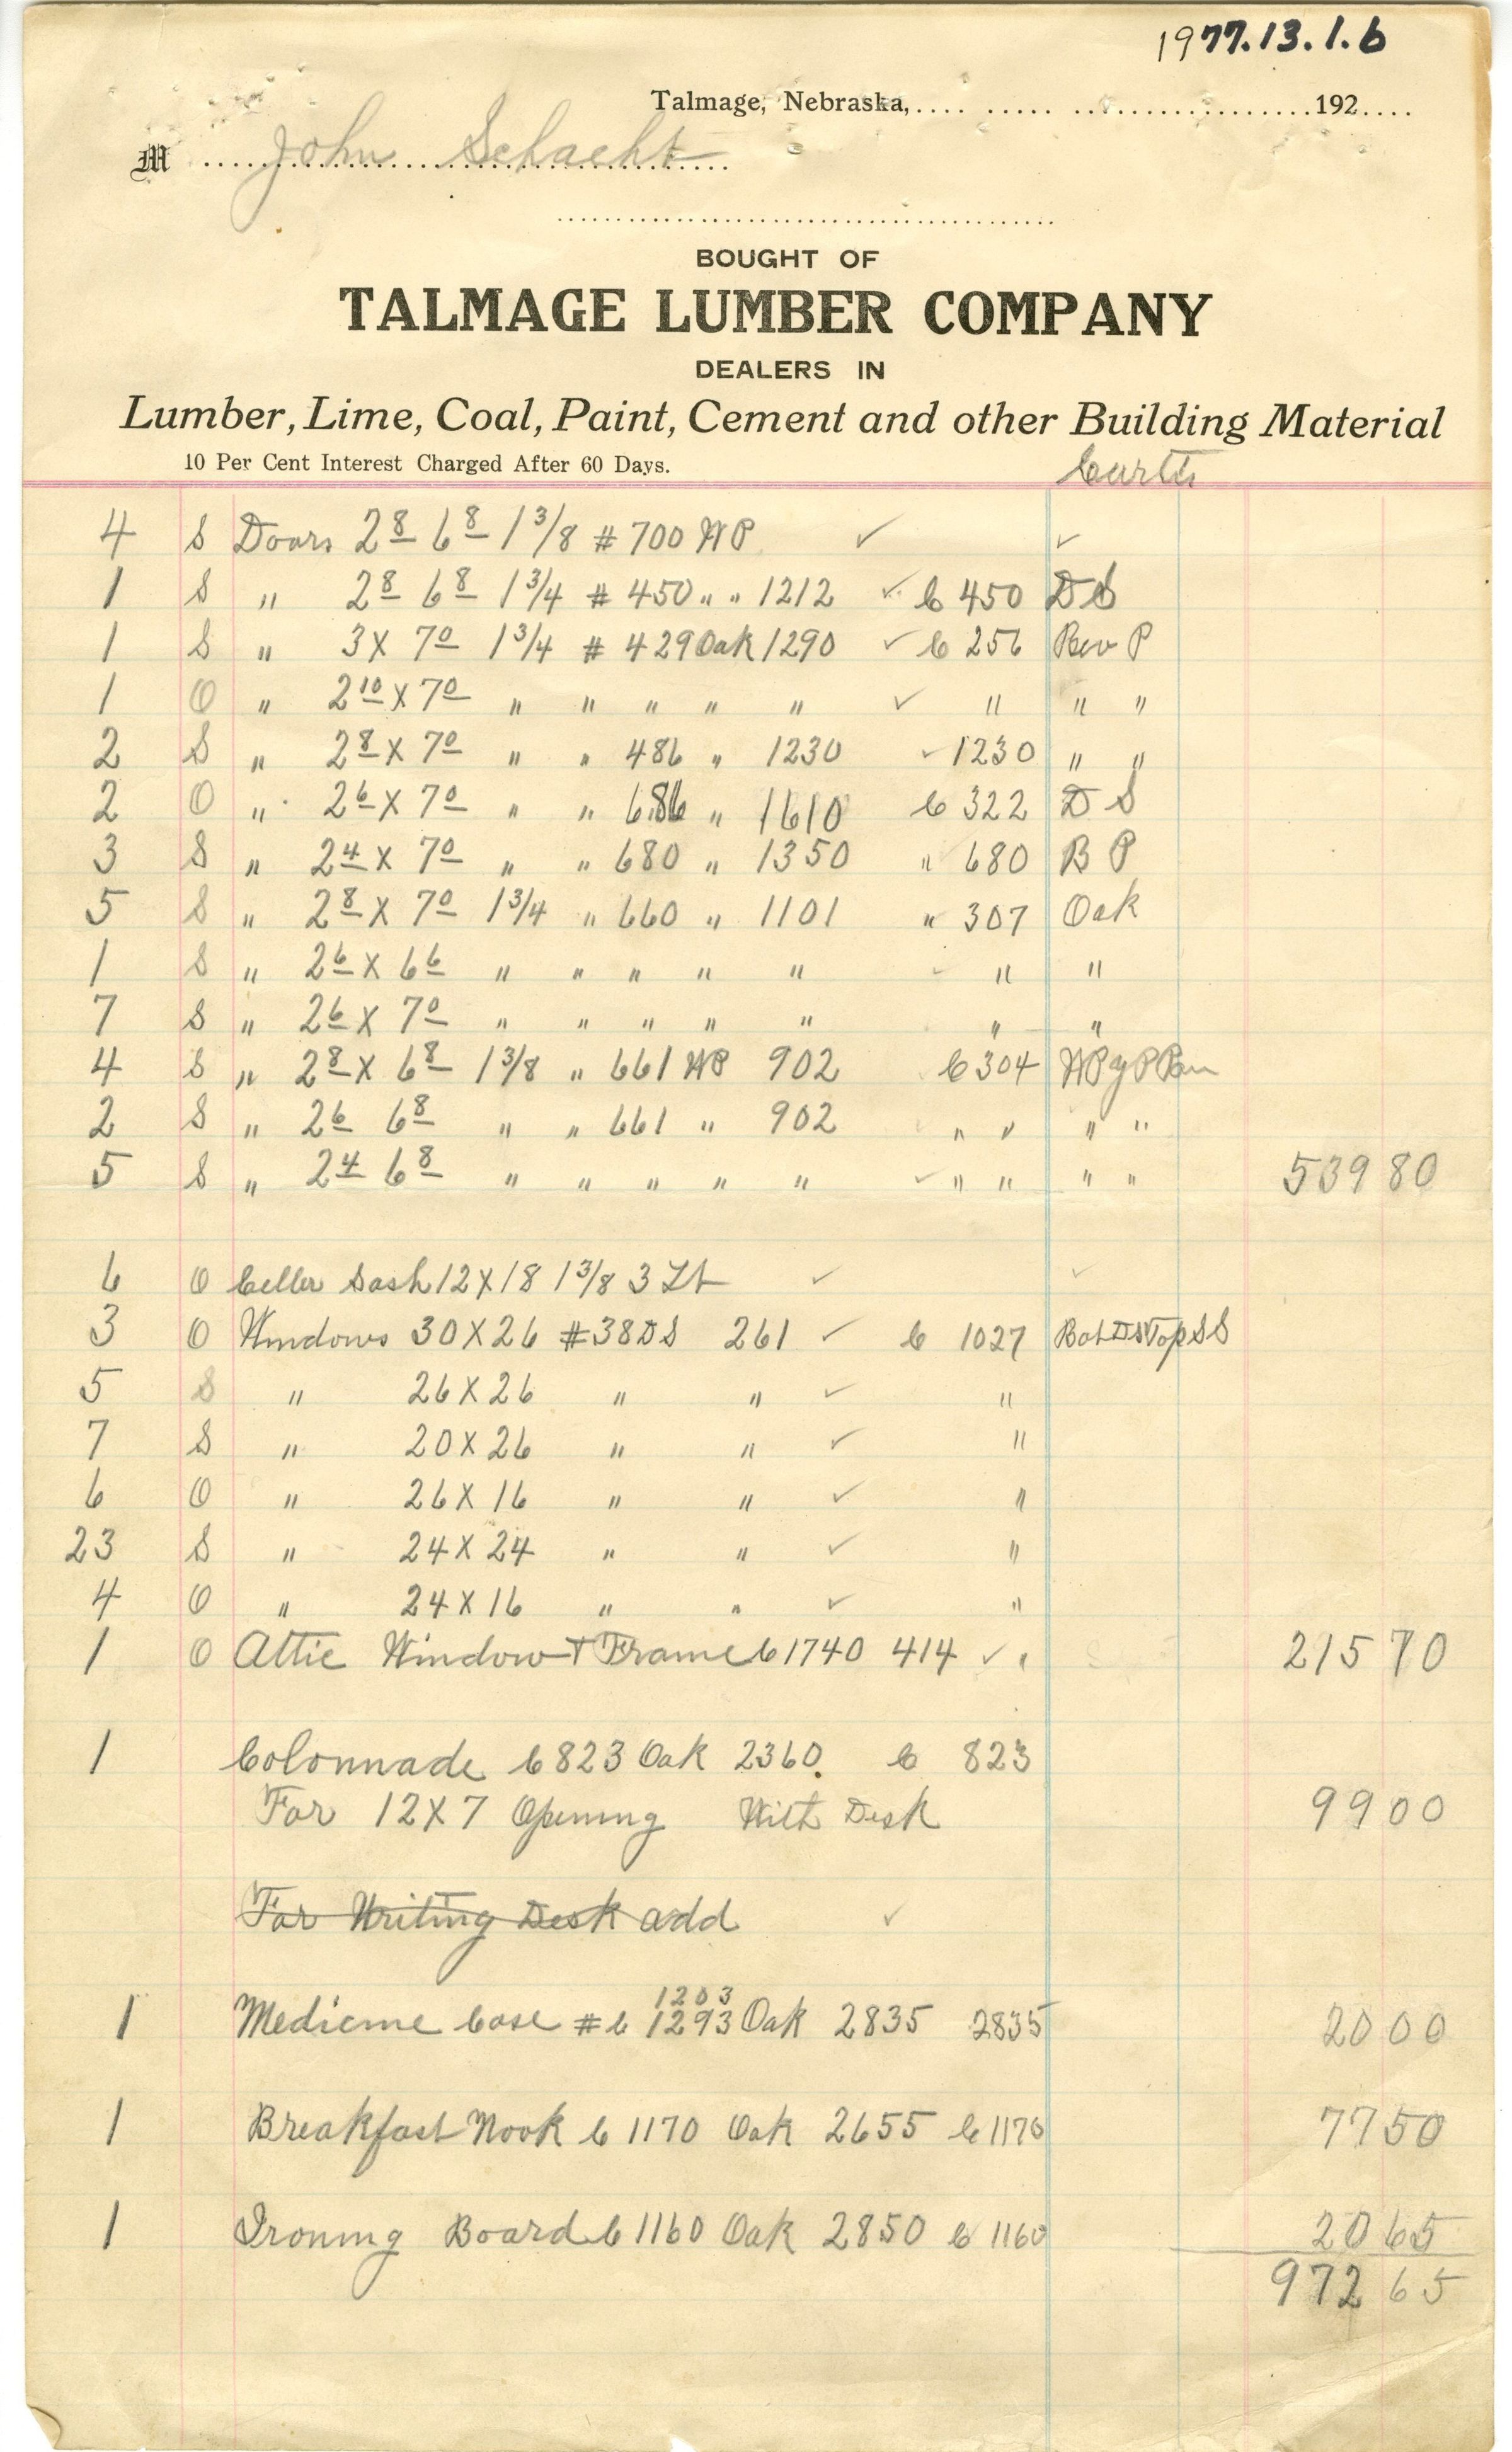 1977.13.1.6
Talmage, Nebraska,.... ..... ..................192....
M John Schacht
BOUGHT OF
TALMAGE LUMBER COMPANY
DEALERS IN
Lumber, Lime, Coal, Paint, Cement and other Building Material
10 Per Cent Interest Charged After 60 Days. Curtis
4 S Doors 2 8 6 8 1 3/8 # 700 WP ✓ ✓
1 S " 2 8 6 8 1 3/4 # 450 " " 1212 ✓ C 450 DS
1 S " 3 X 7 0 1 3/4 # 429 Oak 1290 ✓ C 256 Bev P
1 O " 2 10 X 7 0 " " " " " ✓ " " "
2 S " 2 8 X 7 0 " " 486 " 1230 ✓ 1230 " "
2 O " 2 6 X 7 0 " " 686 " 1610 C 322 D S
3 S " 2 4 X 7 0 " " 680 " 1350 " 680 B P
5 S " 2 8 X 7 0 1 3/4 " 660 " 1101 " 307 Oak
1 S " 2 6 X 6 6 " " " " " " "
7 S " 2 6 X 7 0 " " " " " " "
4 S " 2 8 X 6 8 1 3/8 " 661 WP 902 C 304 WP
2 S " 2 6 6 8 " " 661 " 902 " " " "
5 S " 2 4 6 8 " " " " " ✓ " " " " 539 80
6 O Celler Sash 12 X 18 1 3/8 3 Lt ✓ ✓
3 O Windows 30 X 26 # 38 DS 261 ✓ C 1027 Bot DS Top SS
5 S " 26 X 26 " " ✓ "
7 S " 20 X 26 " " ✓ "
6 O " 26 X 16 " " ✓ "
23 S " 24 X 24 " " ✓ "
4 O " 24 X 16 " " ✓ "
1 O Attic Window + Frame C 1740 414 ✓ 215 70
1 Colonnade C 823 Oak 2360. C 823
For 12 X 7 Opening With Desk 99 00
For Writing Desk add ✓
1203
1 Medicine Case # C 1293 Oak 2835 2835 20 00
1 Breakfast Nook C 1170 Oak 2655 C 1170 77 50
1 Ironing Board C 1160 Oak 2850 C 1160 20 65
972 65